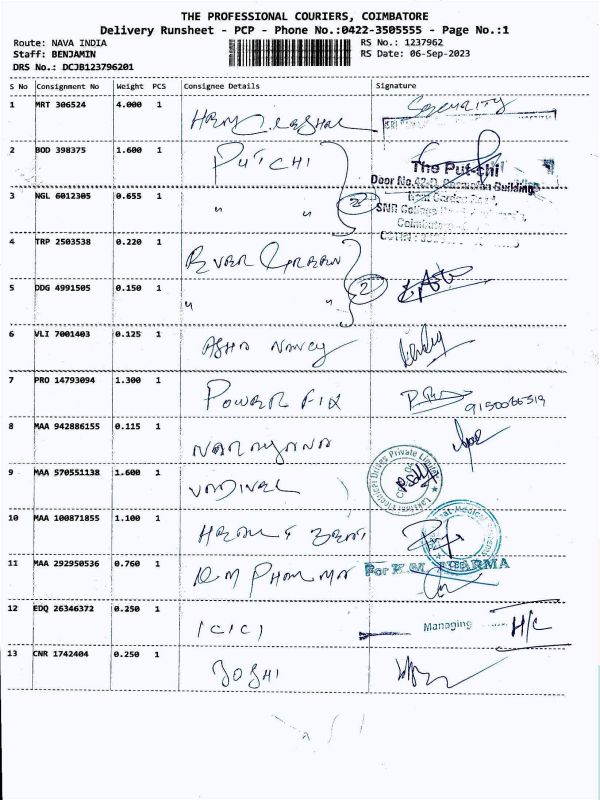 THE PROFESSIONAL COURIERS, COIMBATORE
Delivery Runsheet - PCP - Phone No.:0422-3505555 - Page No.:1
Route: NAVA INDIA RS No.: 1237962
Staff: BENJAMIN RS Date: 06-Sep-2023
DRS No.: DCJB123796201
S No Consignment No Weight PCS Consignee Details Signature
1 MRT 306524 4.000 1
2 BOD 398375 1.600 1 PUTCHI The Put-chi
Door No.
3 NGL 6012305 0.655 1 " " 2
SNR College
4 TRP 2503538 0.220 1 EVER GREEN
5 DDG 4991505 0.150 1 " " 2
6 VLI 7001403 0.125 1 ASHA NANCY
7 PRO 14793094 1.300 1 POWER FIX
8 MAA 942886155 0.115 1 NARAYANA
9 MAA 570551138 1.600 1 VADIVEL Lakshmi Electrical Drives Private Limited
10 MAA 100871855 1.100 1
11 MAA 292950536 0.760 1 For K.M. PHARMA
12 EDQ 26346372 0.250 1 ICICI Managing H/C
13 CNR 1742404 0.250 1 JOSHI